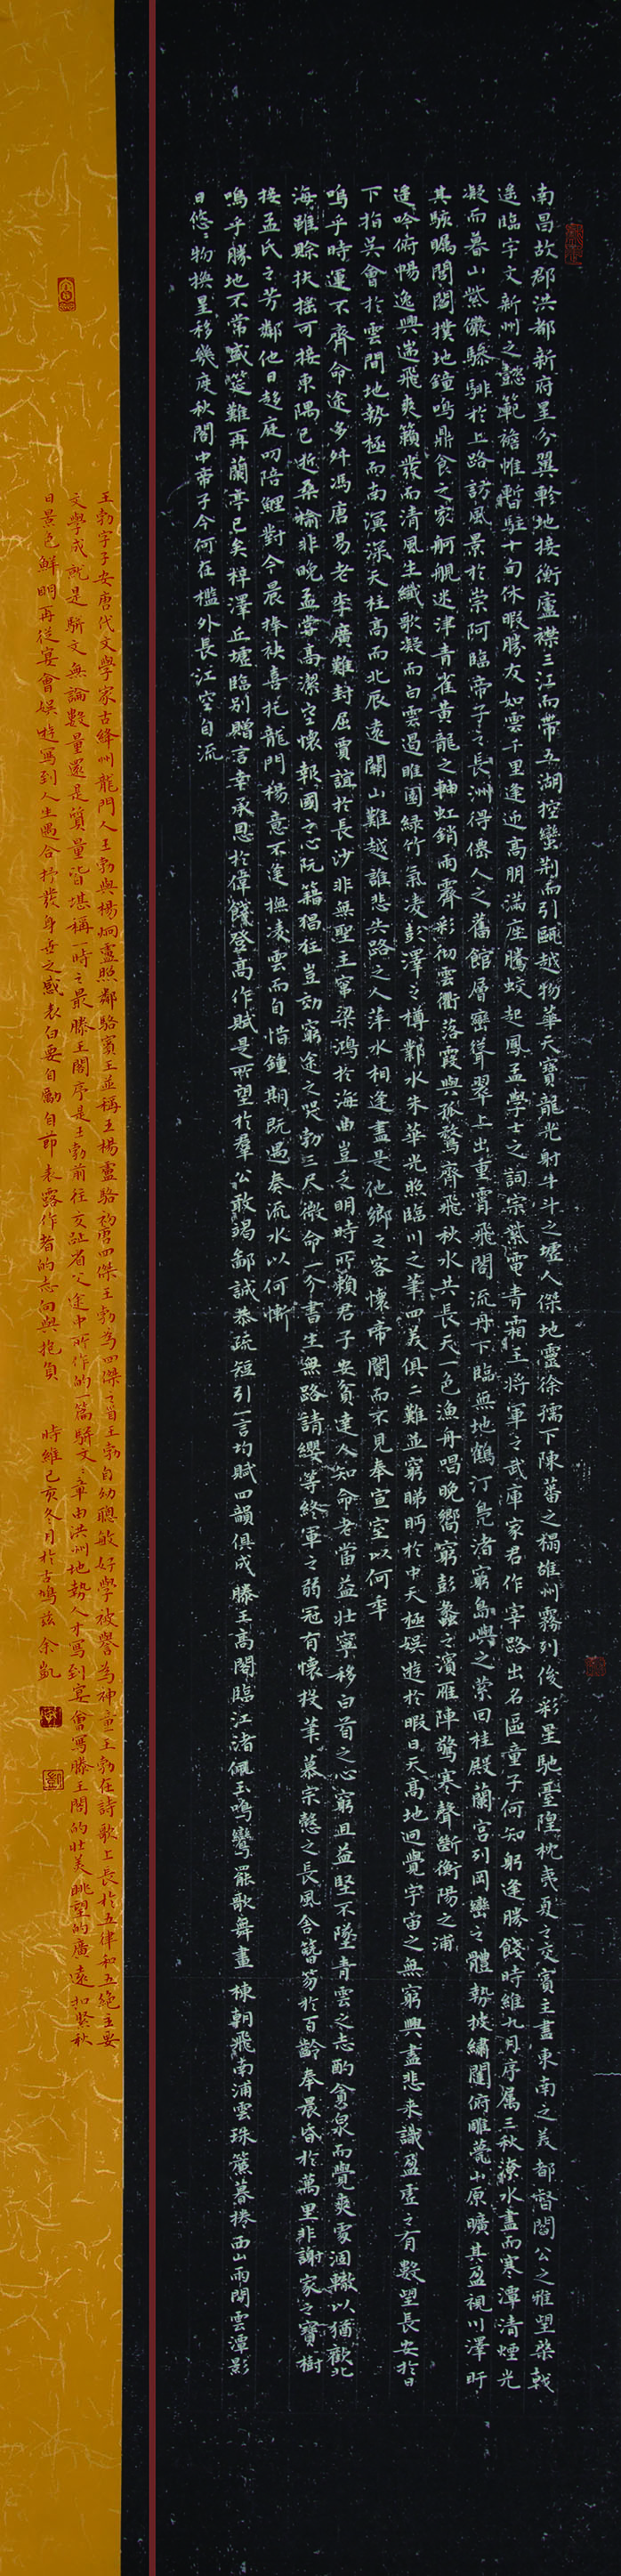 南昌故郡洪都新府星分翼軫地接衡廬襟三江而帶五湖控蠻荊而引甌越物華天寶龍光射牛斗之墟人傑地靈徐孺下陳蕃之榻雄州霧列俊彩星馳臺隍枕夷夏之交賓主盡東南之美都督閻公之雅望棨戟
遙臨宇文新州之懿範襜帷暫駐十旬休暇勝友如雲千里逢迎高朋滿座騰蛟起鳳孟學士之詞宗紫電青霜王將軍之武庫家君作宰路出名區童子何知躬逢勝餞時維九月序屬三秋潦水盡而寒潭清煙光
凝而暮山紫儼驂騑於上路訪風景於崇阿臨帝子之長洲得僊人之舊館層巒聳翠上出重霄飛閣流丹下臨無地鶴汀鳧渚窮島嶼之縈回桂殿蘭宮列岡巒之體勢披繡闥俯雕甍山原曠其盈視川澤盱
其駭矚閭閻撲地鐘鳴鼎食之家舸艦迷津青雀黃龍之軸虹銷雨霽彩彻雲衢落霞與孤鶩齊飛秋水共長天一色漁舟唱晚嚮窮彭蠡之濱雁陣驚寒聲斷衡陽之浦
遙吟俯暢逸興遄飛爽籟發而清風生纖歌凝而白雲遏睢園綠竹氣凌彭澤之樽鄴水朱華光照臨川之筆四美俱二難並窮睇眄於中天極娛遊於暇日天高地迥覺宇宙之無窮興盡悲來識盈虛之有數望長安於日
下指吳會於雲間地勢極而南溟深天柱高而北辰遠關山難越誰悲失路之人萍水相逢盡是他鄉之客懷帝閽而不見奉宣室以何年
嗚乎時運不齊命途多舛馮唐易老李廣難封屈賈誼於長沙非無聖主竄梁鴻於海曲豈乏明時所賴君子安貧達人知命老當益壯寧移白首之心窮且益堅不墜青雲之志酌貪泉而覺爽處涸轍以猶歡北
海雖賒扶搖可接東隅已逝桑榆非晚孟嘗高潔懷報國之心阮籍猖狂豈效窮途之哭勃三尺微命一介書生無路請纓等終軍之弱冠有懷投筆慕宗愨之長風舍簪笏於百齡奉晨昏於萬里非謝家之寶樹
接孟氏之芳鄰他日趨庭叨陪鯉對今晨捧袂喜托龍門楊意不逢撫凌雲而自惜鍾期既遇奏流水以何慚
嗚乎勝地不常盛筵難再蘭亭已矣梓澤丘墟臨別贈言幸承恩於偉餞登高作賦是所望於羣公敢竭鄙誠恭疏短引一言均賦四韻俱成滕王高閣臨江渚佩玉鳴鸞罷歌舞畫棟朝飛南浦雲珠簾暮捲西山雨閑雲潭影
日悠〻物換星移幾度秋閣中帝子今何在檻外長江空自流
王勃字子安唐代文學家古絳州龍門人王勃與楊炯盧照鄰駱賓王並稱王楊盧駱初唐四傑王勃為四傑之首王勃自幼聰敏好學被譽為神童王勃在詩歌上長於五律和五絕主要
文學成就是駢文無論數量還是質量皆堪稱一時之最滕王閣序是王勃前往交趾省父途中所作的一篇駢文〻章由洪州地勢人才寫到宴會寫滕王閣的壯美眺望的廣遠扣緊秋
日景色鮮明再從宴會娛遊寫到人生遇合抒發身世之感表白要自勵自節表露作者的志向與抱負 時維己亥冬月於古鳩茲余凱